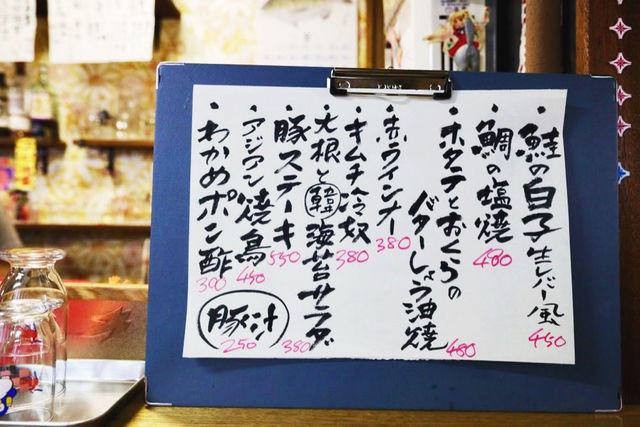 ・鮭の白子生レバー風
450
・鯛の塩焼
480
・ホタテとおくらの
バターしょう油焼
480
・赤ウインナー
380
・キムチ冷奴
380
・大根と韓海苔サラダ
380
・豚ステーキ
550
・アジアン焼鳥
450
・わかめポン酢
300
豚汁
250